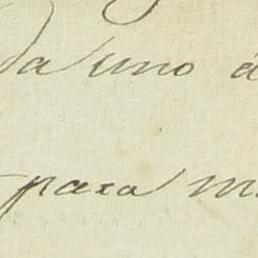 da uno á
para m